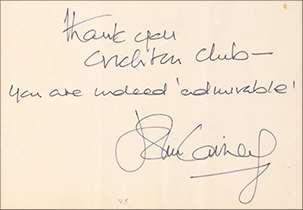 Thank you
Crichton Club –
you are indeed 'admirable'
John Cairney